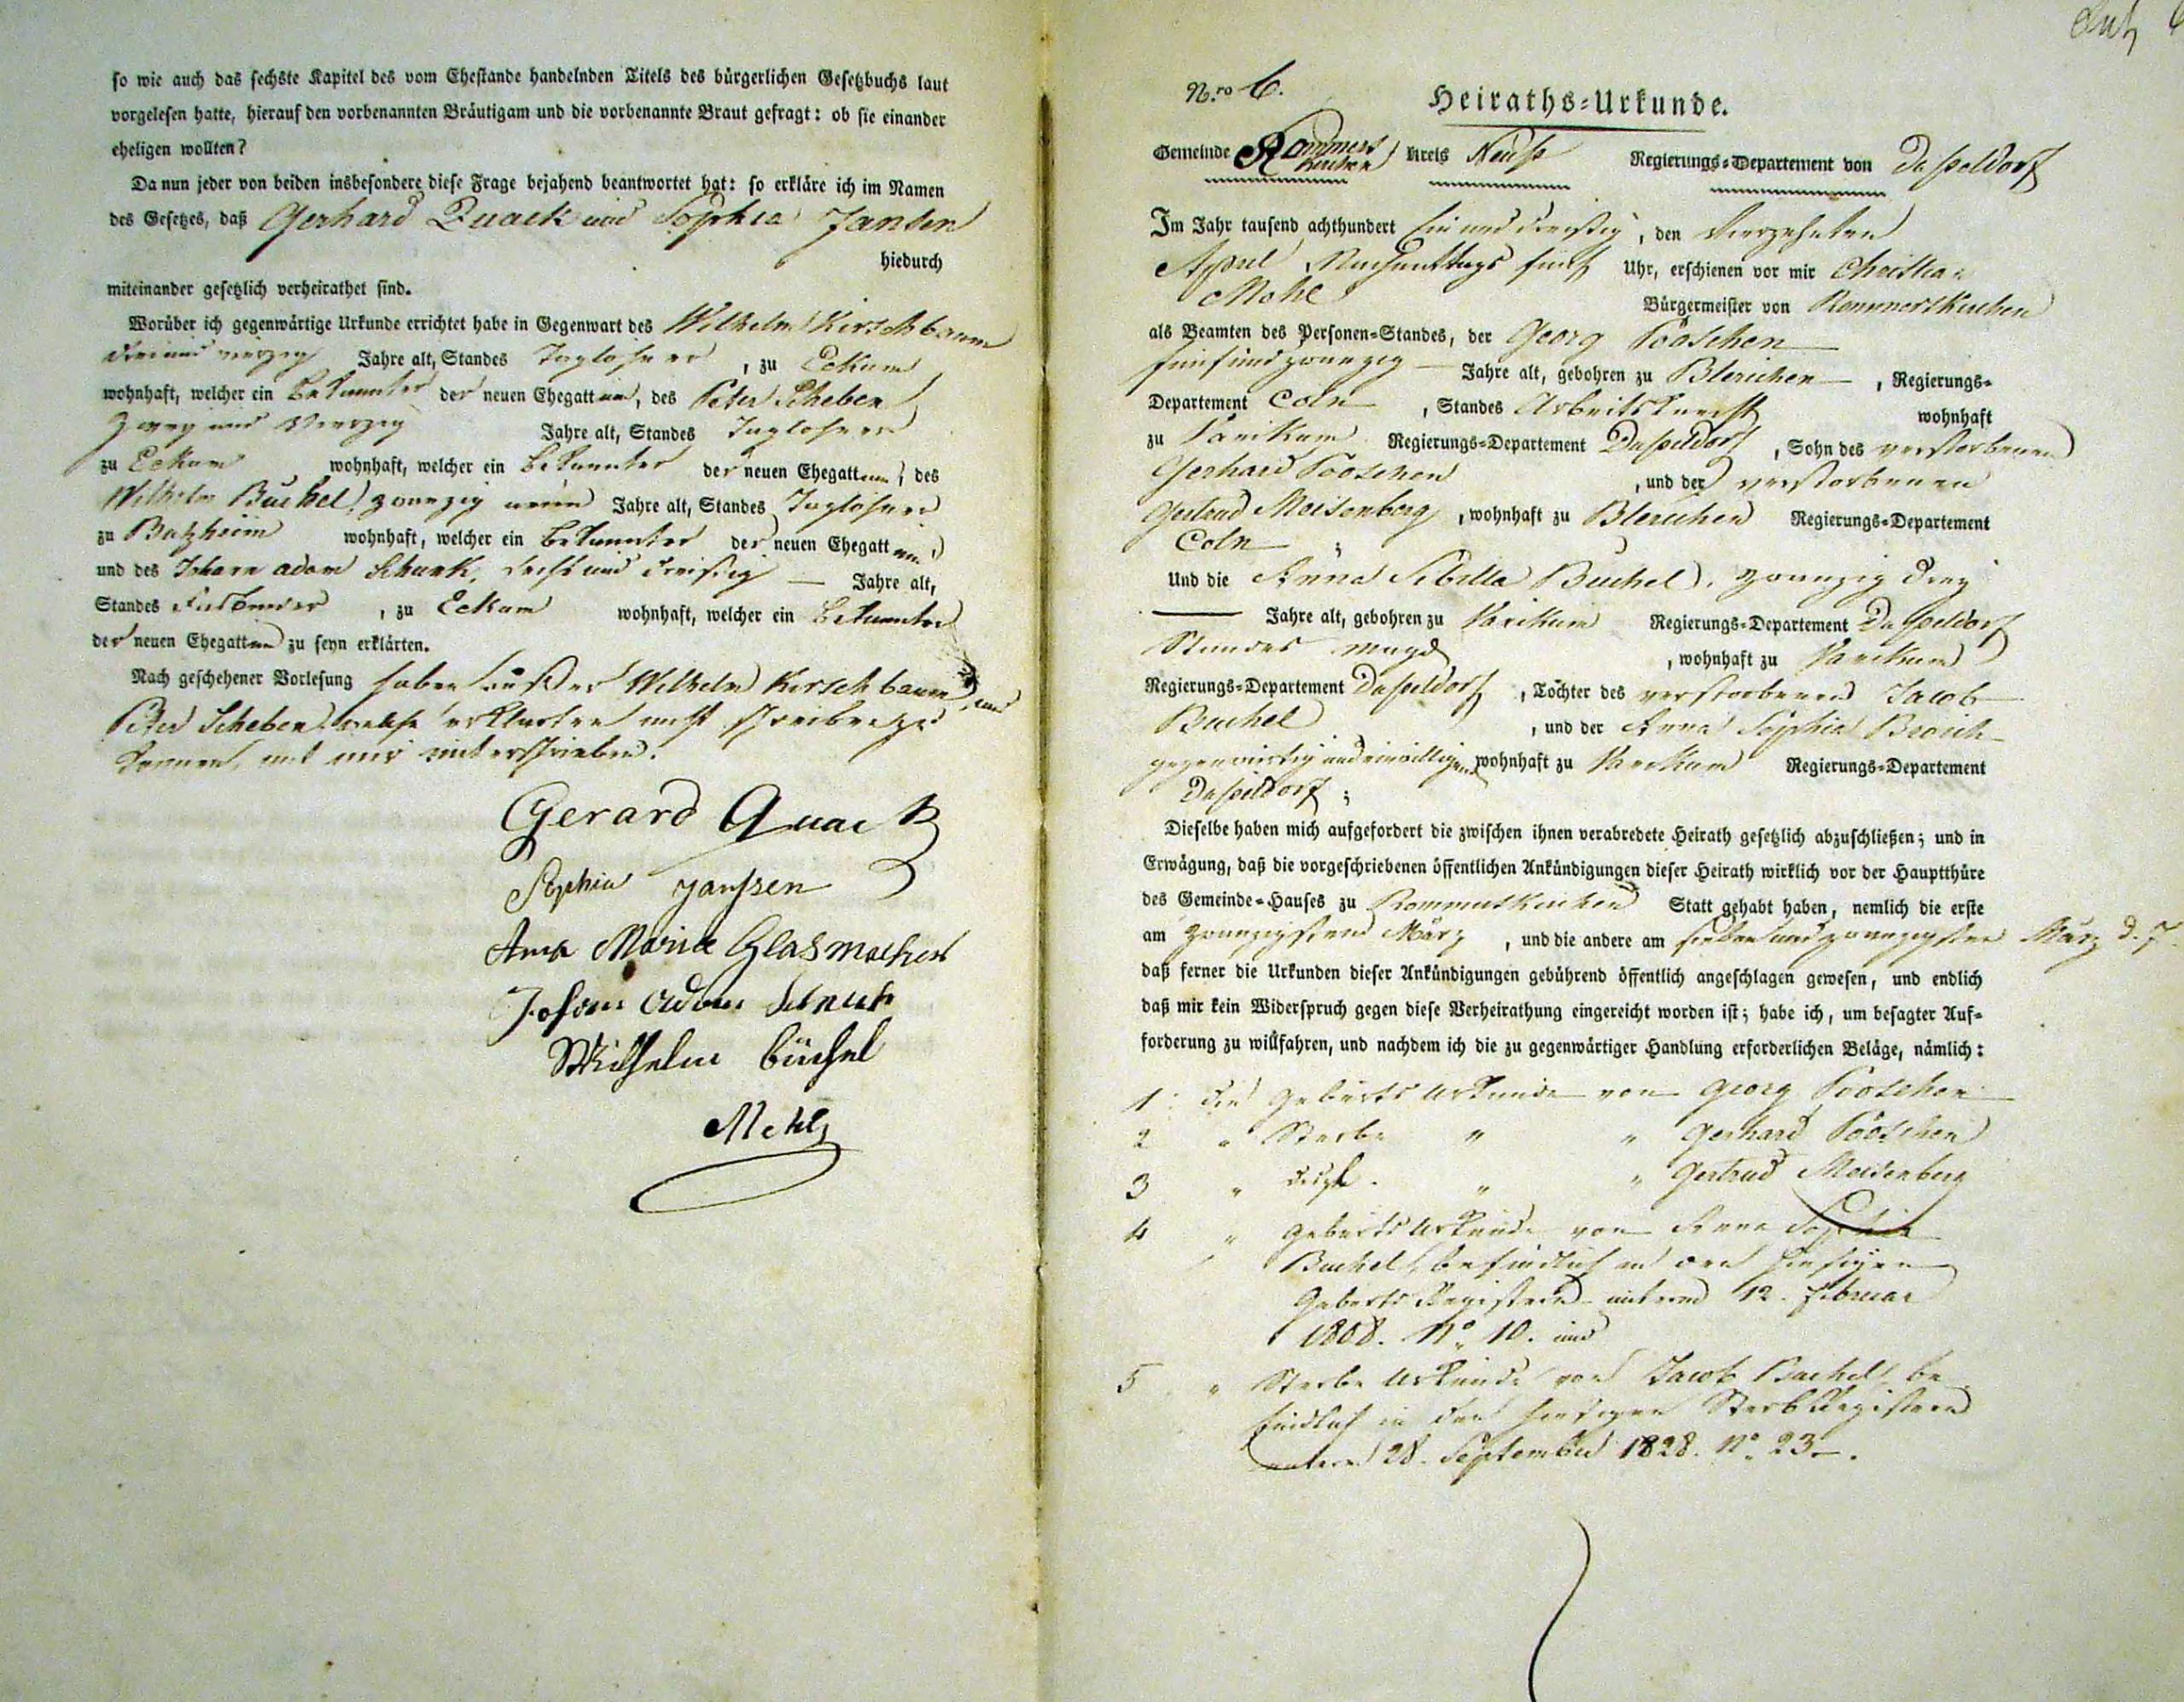 so wie auch das sechste Kapitel des vom Ehestande handelnden Titels des bürgerlichen Gesetzbuchs laut
vorgelesen hatte, hierauf den vorbenannten Bräutigam und die vorbenannte Braut gefragt: ob sie einander
eheligen wollten?
Da nun jeder von beiden insbesondere diese Frage bejahend beantwortet hat: so erkläre ich im Namen
des Gesetzes, daß Gerhard Quack und Sophia Jansen
hiedurch
miteinander gesetzlich verheirathet sind.
Worüber ich gegenwärtige Urkunde errichtet habe in Gegenwart des Wilhelm Kirschbaum
drei und vierzig Jahre alt, Standes Taglöhner, zu Eckum
wohnhaft, welcher ein Bekannter der neuen Ehegatten, des Peter Scheben
zwey und vierzig Jahre alt, Standes Taglöhner
zu Eckum wohnhaft, welcher ein Bekannter der neuen Ehegatten, des
Wilhelm Büchel, zwanzig neun Jahre alt, Standes Taglöhner
zu Butzheim wohnhaft, welcher ein Bekannter der neuen Ehegatten,
und des Johann Adam Schunk, sechs und dreißig — Jahre alt,
Standes, zu Eckum wohnhaft, welcher ein Bekannter
der neuen Ehegatten zu seyn erklärten.
Nach geschehener Vorlesung haben außer Wilhelm Kirschbaum, und
Peter Scheben, welche erklärten nicht schreiben zu
können, mit mir unterschrieben.
Gerard Quack
Sophia Janssen
Anna Maria Glasmacher
Johann Adam Schunk
Wilhelm Büchel
Mohl
N.ro 6.
Heiraths=Urkunde.
Gemeinde Rommerskirchen Kreis Neuß Regierungs=Departement von Dusseldorf
Im Jahr tausend achthundert Ein und dreißig, den vierzehnten
April Nachmittags fünf Uhr, erschienen vor mir Christian
Mohl Bürgermeister von Rommerskirchen
als Beamten des Personen=Standes, der Georg Pööschen
fünf und zwanzig — Jahre alt, gebohren zu Blerichen —, Regierungs=
Departement Coln, Standes Arbeitsknecht wohnhaft
zu Varikum Regierungs=Departement Dusseldorf, Sohn des verstorbenen
Gerhard Pööschen, und der verstorbenen
Gertrud Meisenberg, wohnhaft zu Blerichen Regierungs=Departement
Coln;
Und die Anna Sibilla Buchel, zwanzig drey
— Jahre alt, gebohren zu Varikum Regierungs=Departement Dusseldorf
Standes Magd, wohnhaft zu Varikum
Regierungs=Departement Dusseldorf, Töchter des verstorbenen Jacob
Buchel, und der Anna Sophia Broich
gegenwärtig und einwilligend wohnhaft zu Varikum Regierungs=Departement
Dusseldorf;
Dieselbe haben mich aufgefordert die zwischen ihnen verabredete Heirath gesetzlich abzuschließen; und in
Erwägung, daß die vorgeschriebenen öffentlichen Ankündigungen dieser Heirath wirklich vor der Hauptthüre
des Gemeinde=Hauses zu Rommerskirchen Statt gehabt haben, nemlich die erste
am zwanzigsten März, und die andere am sieben und zwanzigsten März d. J.
daß ferner die Urkunden dieser Ankündigungen gebührend öffentlich angeschlagen gewesen, und endlich
daß mir kein Widerspruch gegen diese Verheirathung eingereicht worden ist; habe ich, um besagter Auf=
forderung zu willfahren, und nachdem ich die zu gegenwärtiger Handlung erforderlichen Beläge, nämlich:
1. die Geburts Urkunde von Georg Pööschen
2 " Sterbe " " Gerhard Pööschen
3 " desgl. " " Gertrud Meisenberg
4 " Geburts Urkunde von Anna Sophia
Buchel, befindlich in den hiesigen
Geburts Registern unterm 12. Februar
1808. No 10. und
5 " Sterbe Urkunde von Jacob Buchel, be
findlich in den hiesigen Sterb Registern
unterm 28. September 1828. No 23.